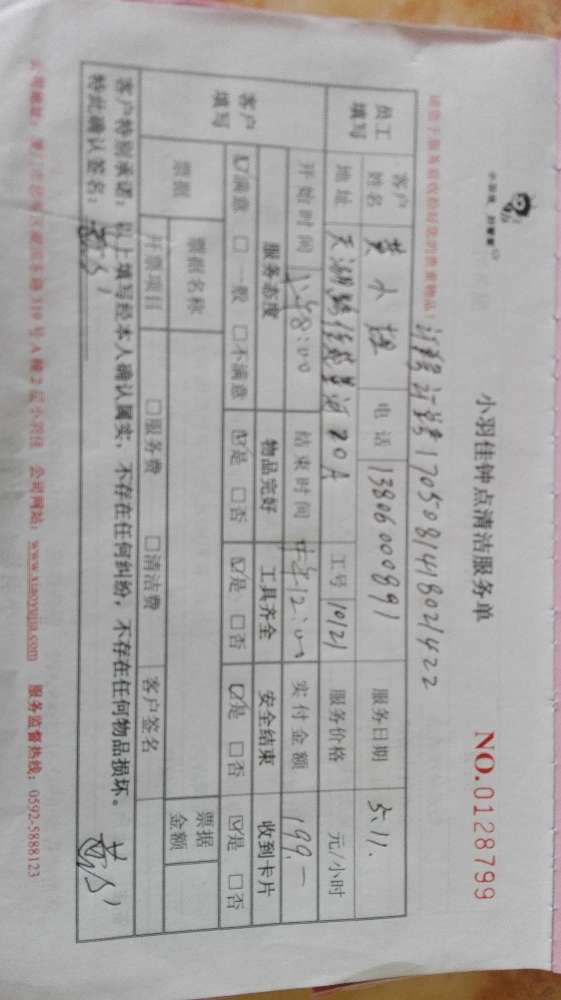 小羽佳钟点清洁服务单
NO.0128799
小羽佳 好管家
订单号1705081418021422
请您于服务前收拾好您的贵重物品!
员工填写 客户姓名 黄小姐 电话 13806000891 服务日期 5.11.
地址 天湖路 20A 工号 10121 服务价格 元/小时
客户填写 开始时间 上午8:00 结束时间 中午12:00 实付金额 199.—
服务态度 物品完好 工具齐全 安全结束 收到卡片
☑满意 □一般 □不满意 ☑是 □否 ☑是 □否 ☑是 □否 ☑是 □否
票据 票据名称 票据金额
开票项目 □服务费 □清洁费 客户签名
客户特别承诺:以上填写经本人确认属实,不存在任何纠纷,不存在任何物品损坏。
特此确认签名:
公司地址:厦门市思明区湖滨东路319号A幢2层小羽佳 公司网站:www.xiaoyujia.com 服务监督热线:0592-5888123